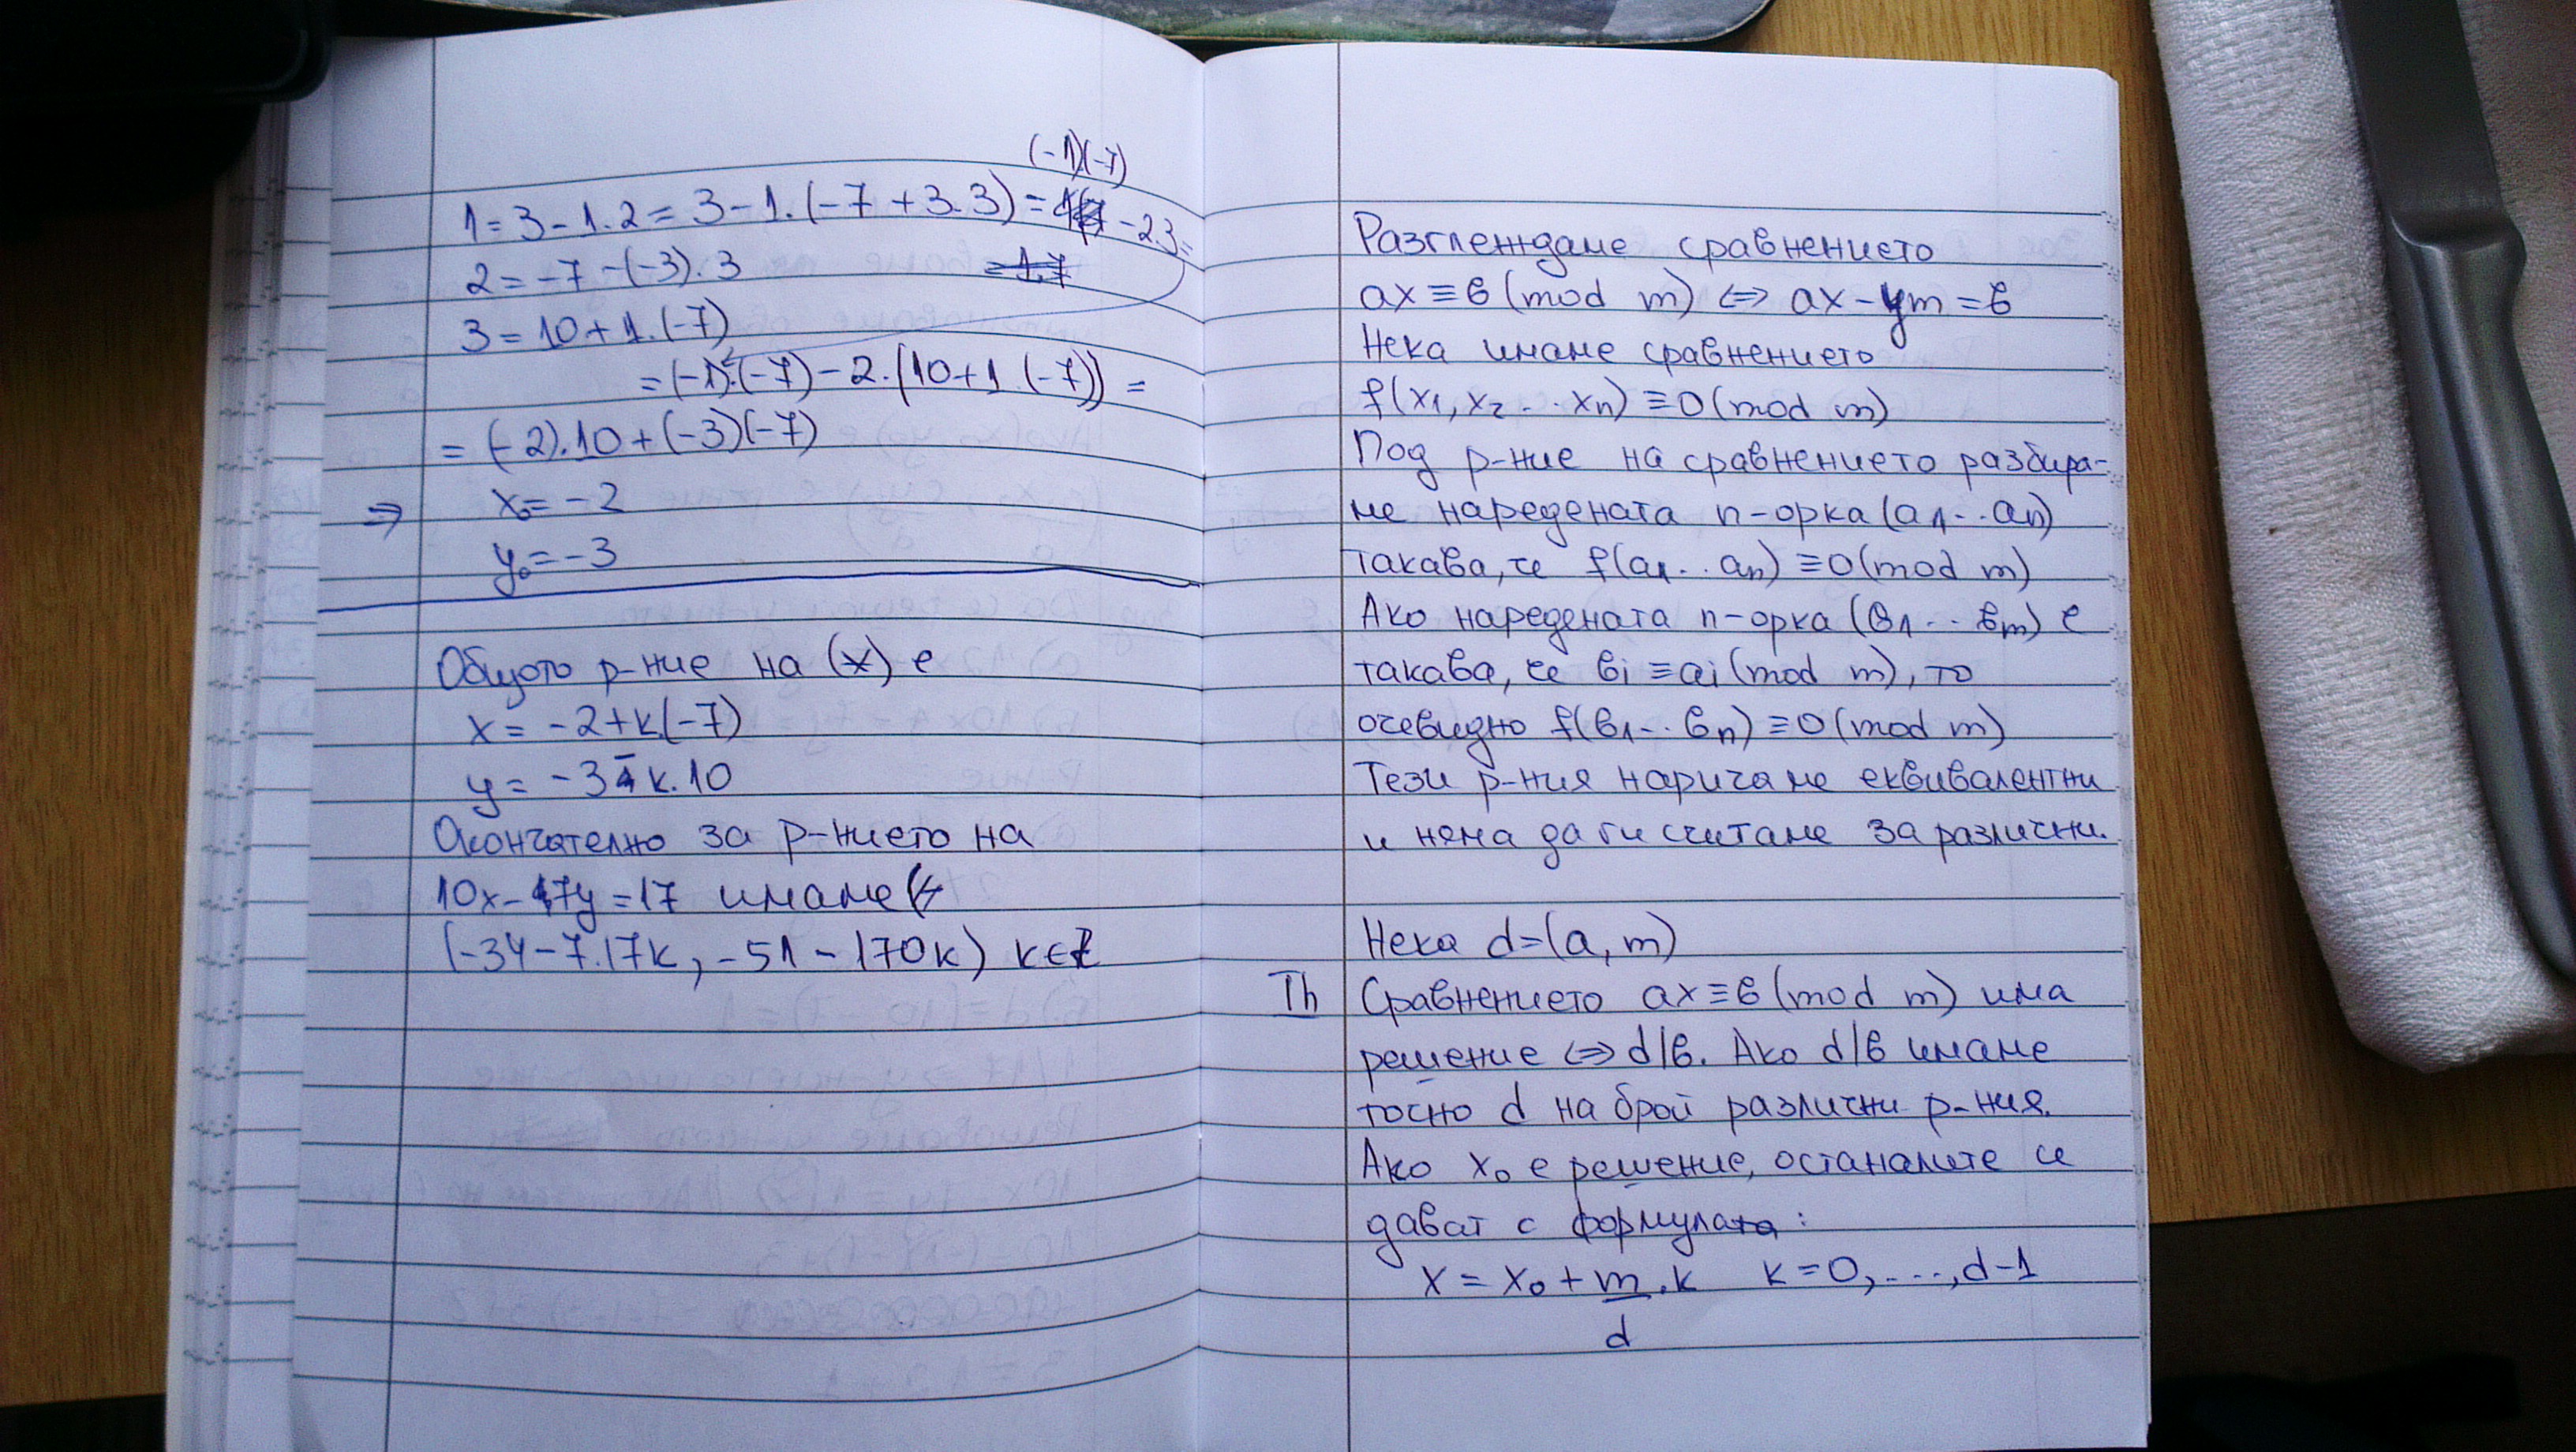 (-1)(-7)
1 = 3 - 1.2 = 3 - 1.(-7 + 3.3) = -2.3 =
2 = -7 - (-3).3
3 = 10 + 1.(-7)
= (-1).(-7) - 2.(10 + 1.(-7)) =
= (-2).10 + (-3)(-7)
⇒ x₀ = -2
y₀ = -3
Общото р-ние на (x) е
x = -2 + k(-7)
y = -3 - k.10
Окончателно за р-нието на
10x - 7y = 17 имаме
(-34 - 7.17k, -51 - 170k) k∈Z
Разглеждаме сравнението
ax ≡ b (mod m) ⇔ ax - ym = b
Нека имаме сравнението
f(x₁, x₂ .. xn) ≡ 0 (mod m)
Под р-ние на сравнението разбира-
ме наредената n-орка (a₁ .. an)
такава, че f(a₁ .. an) ≡ 0 (mod m)
Ако наредената n-орка (b₁ .. bm) е
такава, че bi ≡ ai (mod m), то
очевидно f(b₁ .. bn) ≡ 0 (mod m)
Тези р-ния наричаме еквивалентни
и няма да ги считаме за различни.
Нека d = (a, m)
Th Сравнението ax ≡ b (mod m) има
решение ⇔ d/b. Ако d/b имаме
точно d на брой различни р-ния.
Ако x₀ е решение, останалите се
дават с формулата:
x = x₀ + m/d . k k = 0, ...., d-1